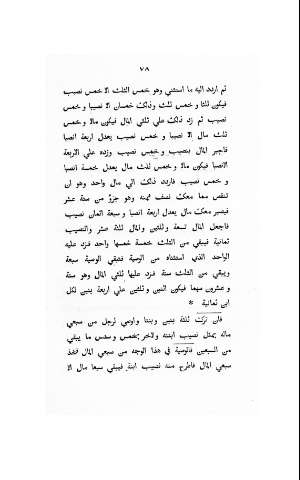 ٧٨
ثم اردد اليه ما استثني وهو خمس الثلث الا خمس نصيب
فيكون ثلثا و خمس ثلث وذالك خمسان الا نصيبا و خمس
نصيب ثم زد ذالك علي ثلثي المال فيكون مالا و خمس
ثلث مال الا نصيبا و خمس نصيب يعدل اربعة انصبا
فاجبر المال بنصيب و خمس نصيب وزده علي الاربعة
الانصبا فيكون مالا و خمس ثلث مال يعدل خمسة انصبا
و خمس نصيب فاردد ذالك الي مال واحد وهو ان
تنقص مما معك نصف ثمنه وهو جزؤ من ستة عشر
فيصير معك مال يعدل اربعة انصبا و سبعة اثمان نصيب
فاجعل المال تسعة وثلثين والمال ثلثة عشر والنصيب
ثمانية فيبقي من الثلث خمسة خمسها واحد فزد عليه
الواحد الذي استثناه من الوصية فتبقي الوصية سبعة
ويبقي من الثلث ستة فزد عليها ثلثي المال وهو ستة
و عشرون سهما فيكون اثنين وثلثين علي اربعة بنين لكل
ابن ثمانية *
فان ترك ثلثة بنين وبنتا واوصي لرجل من سبعي
ماله بمثل نصيب ابنته ولاخر بخمس و سدس ما يبقي
من السبعين فالوصية في هذا الوجه من سبعي المال فخذ
سبعي المال فاطرح منه نصيب ابنة فيبقي سبعا مال الا